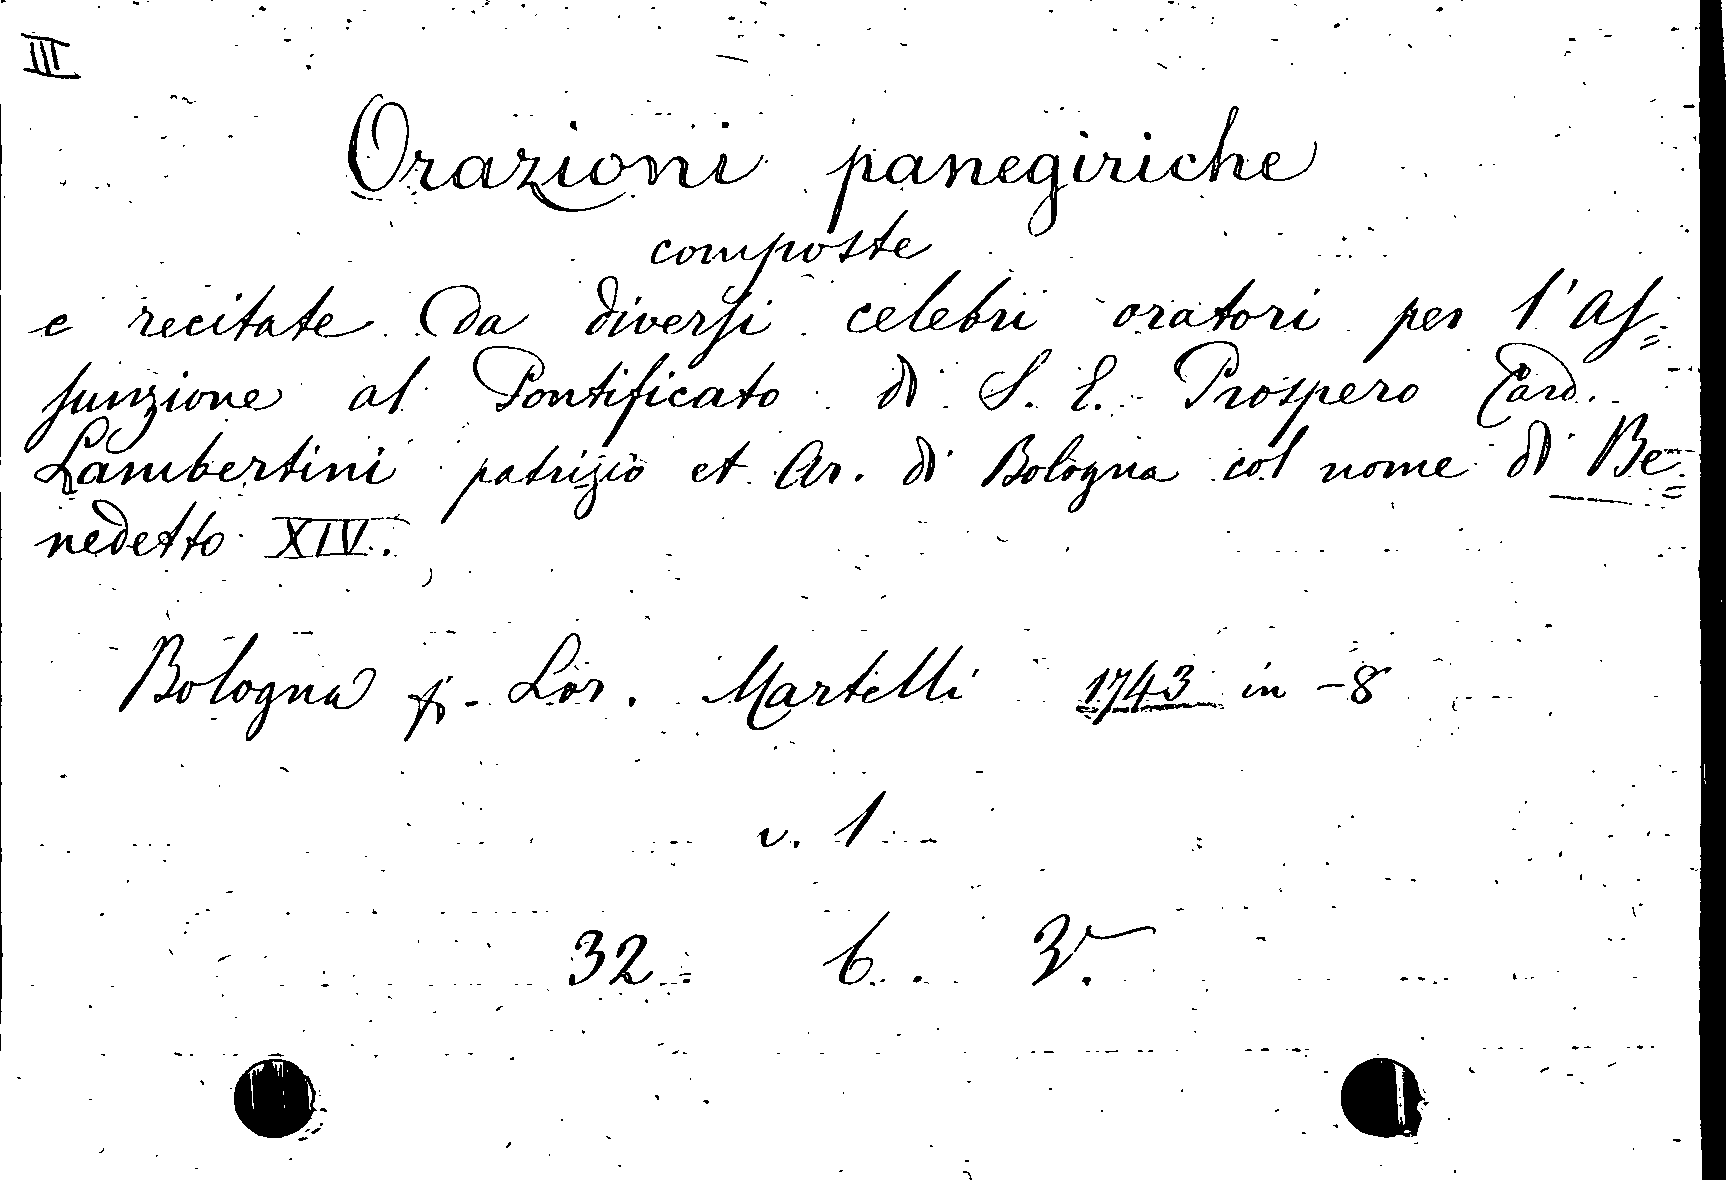 III
Orazioni panegiriche
composte
e recitate da diversi celebri oratori per l'As=
sunzione al Pontificato di S. E. Prospero Card.
Lambertini patrizio et Ar. di Bologna col nome di Be=
nedetto XIV.
Bologna Lor. Martelli 1743 in -8
v. 1
32 6. 3.